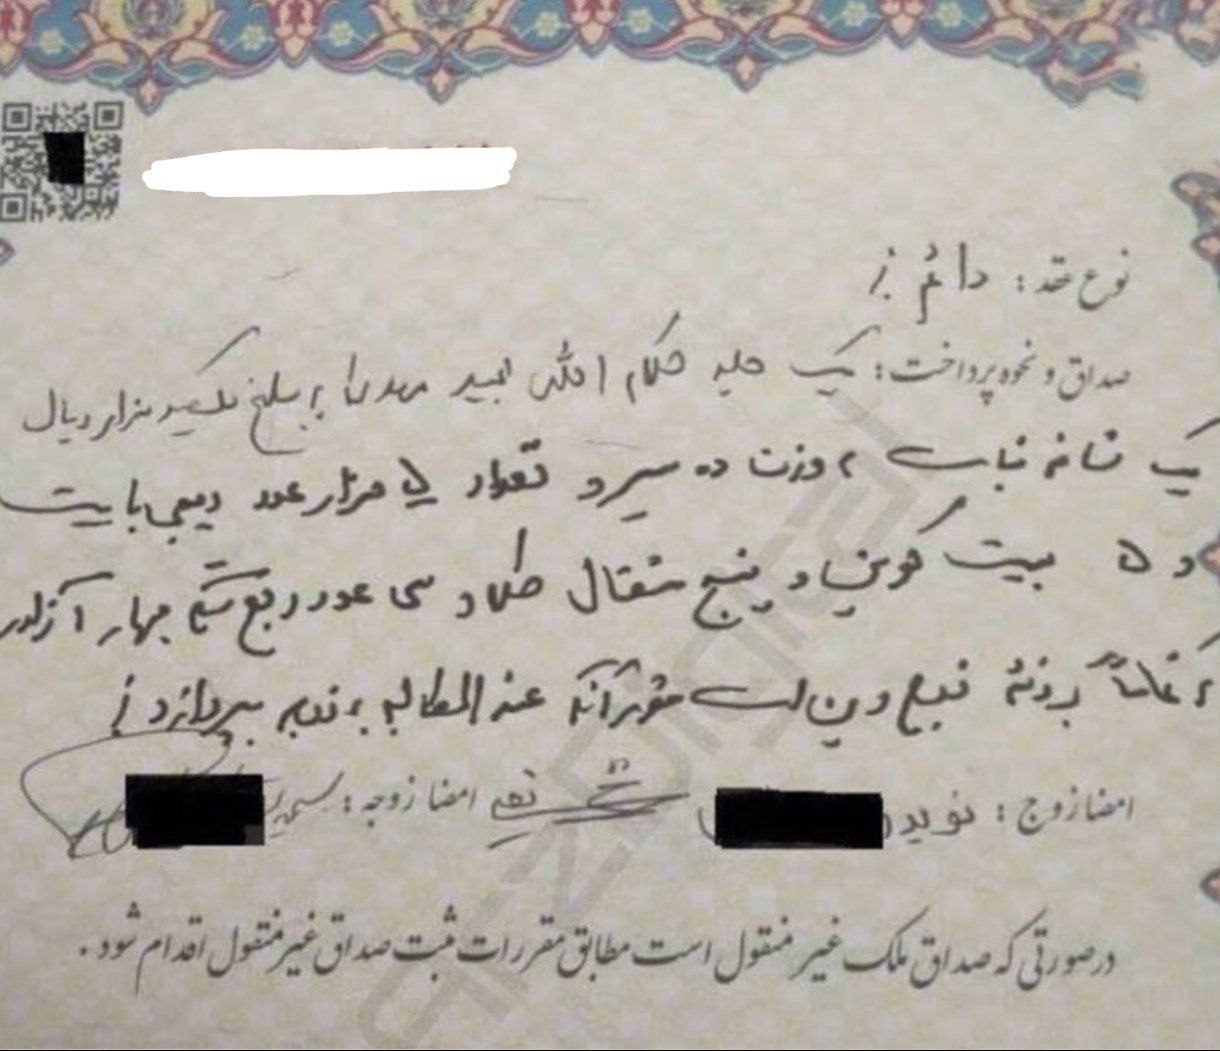 نوع عقد: دائم
صداق و نحوه پرداخت: یک جلد کلام الله مجید مهدیا بمبلغ یکصد هزار ریال
یک شاخه نبات بوزن ده سیر و تعداد ۵ هزار عدد دیجی بایت
و ۵ بیت کوین و پنج مثقال طلا و سی عدد ربع سکه بهار آزادی
که تماماً برذمه زوج دین است عندالمطالبه به زوجه بپردازد
امضا زوج: نوید امضا زوجه:
درصورتی که صداق ملک غیر منقول است مطابق مقررات ثبت صداق غیر منقول اقدام شود.